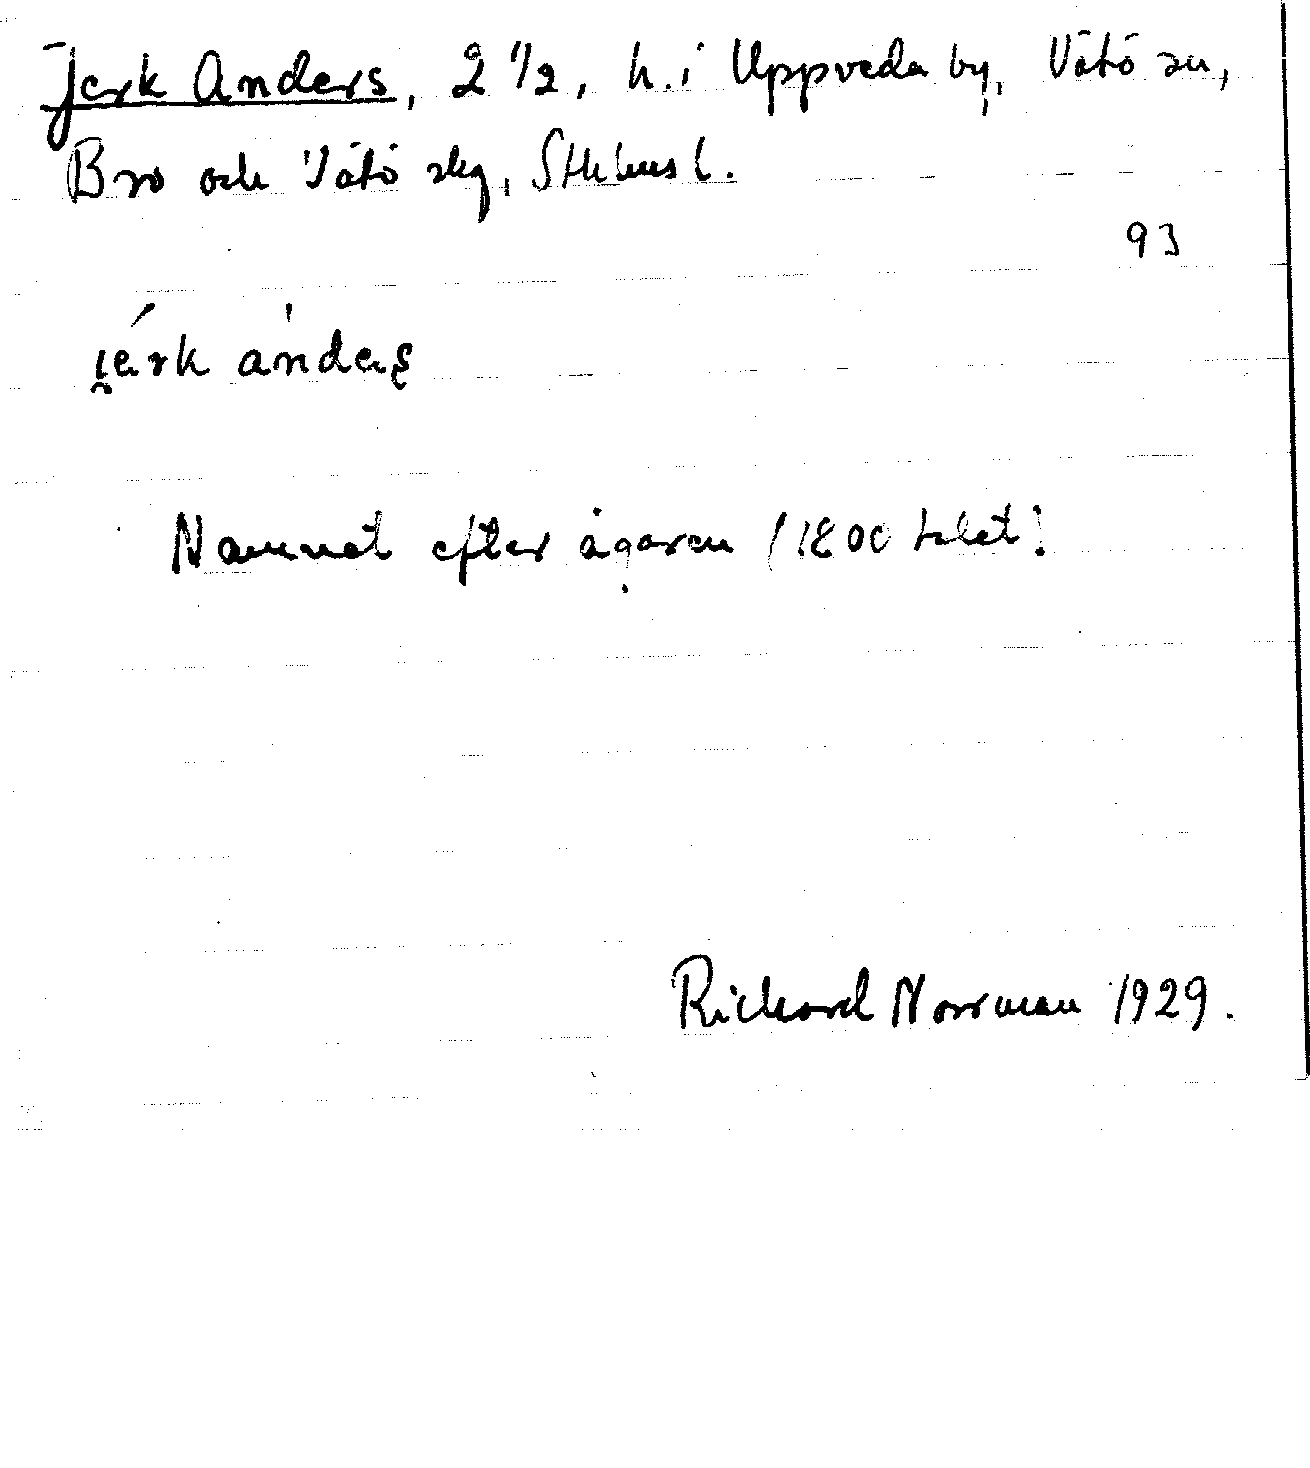 Jerk Anders, 2 1/2, h. i Uppveda by, Vätö sn,
Bro och Vätö skg, Sthlms l.
93
i̯érk àndeṣ
Namnet efter ägaren (1800 talet).
Richard Norrman 1929.